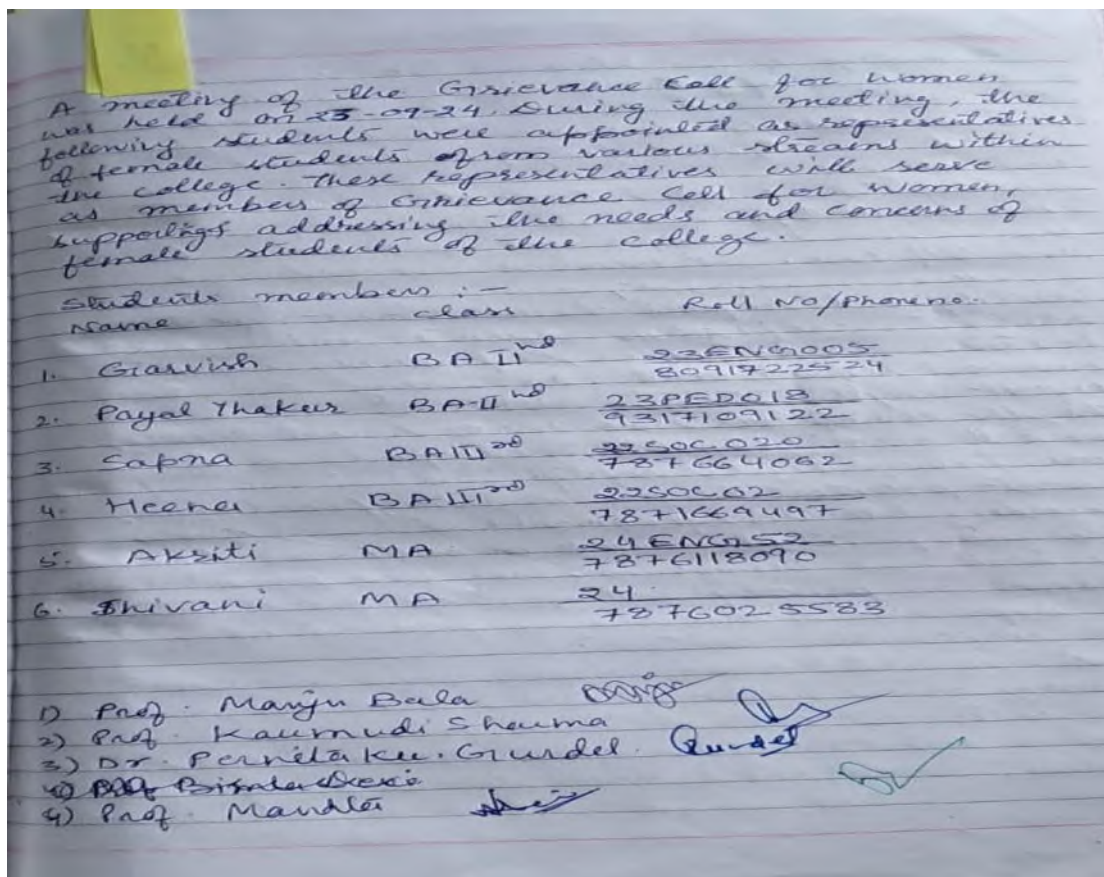 A meeting of the Grievance Cell for women
was held on 25-09-24. During the meeting, the
following students were appointed as representatives
of female students from various streams within
the college. These representatives will serve
as members of Grievance Cell for women,
supporting addressing the needs and concerns of
female students of the college.
Students members :-
Name class Roll No/Phone no.
1. Garvish BA IInd 23ENG005
8091722524
2. Payal Thakur BA-IInd 23PED018
9317109122
3. Sapna BA IIIrd 22SOC020
7876664062
4. Heena BA IIIrd 22SOC02
7871669497
5. Akriti MA 24ENG52
7876118090
6. Shivani MA 24
7876025583
1) Prof. Manju Bala
2) Prof. Kaumudi Sharma
3) Dr. Pernita Ku. Gurdel. Gurdel
4) Prof. Mandla